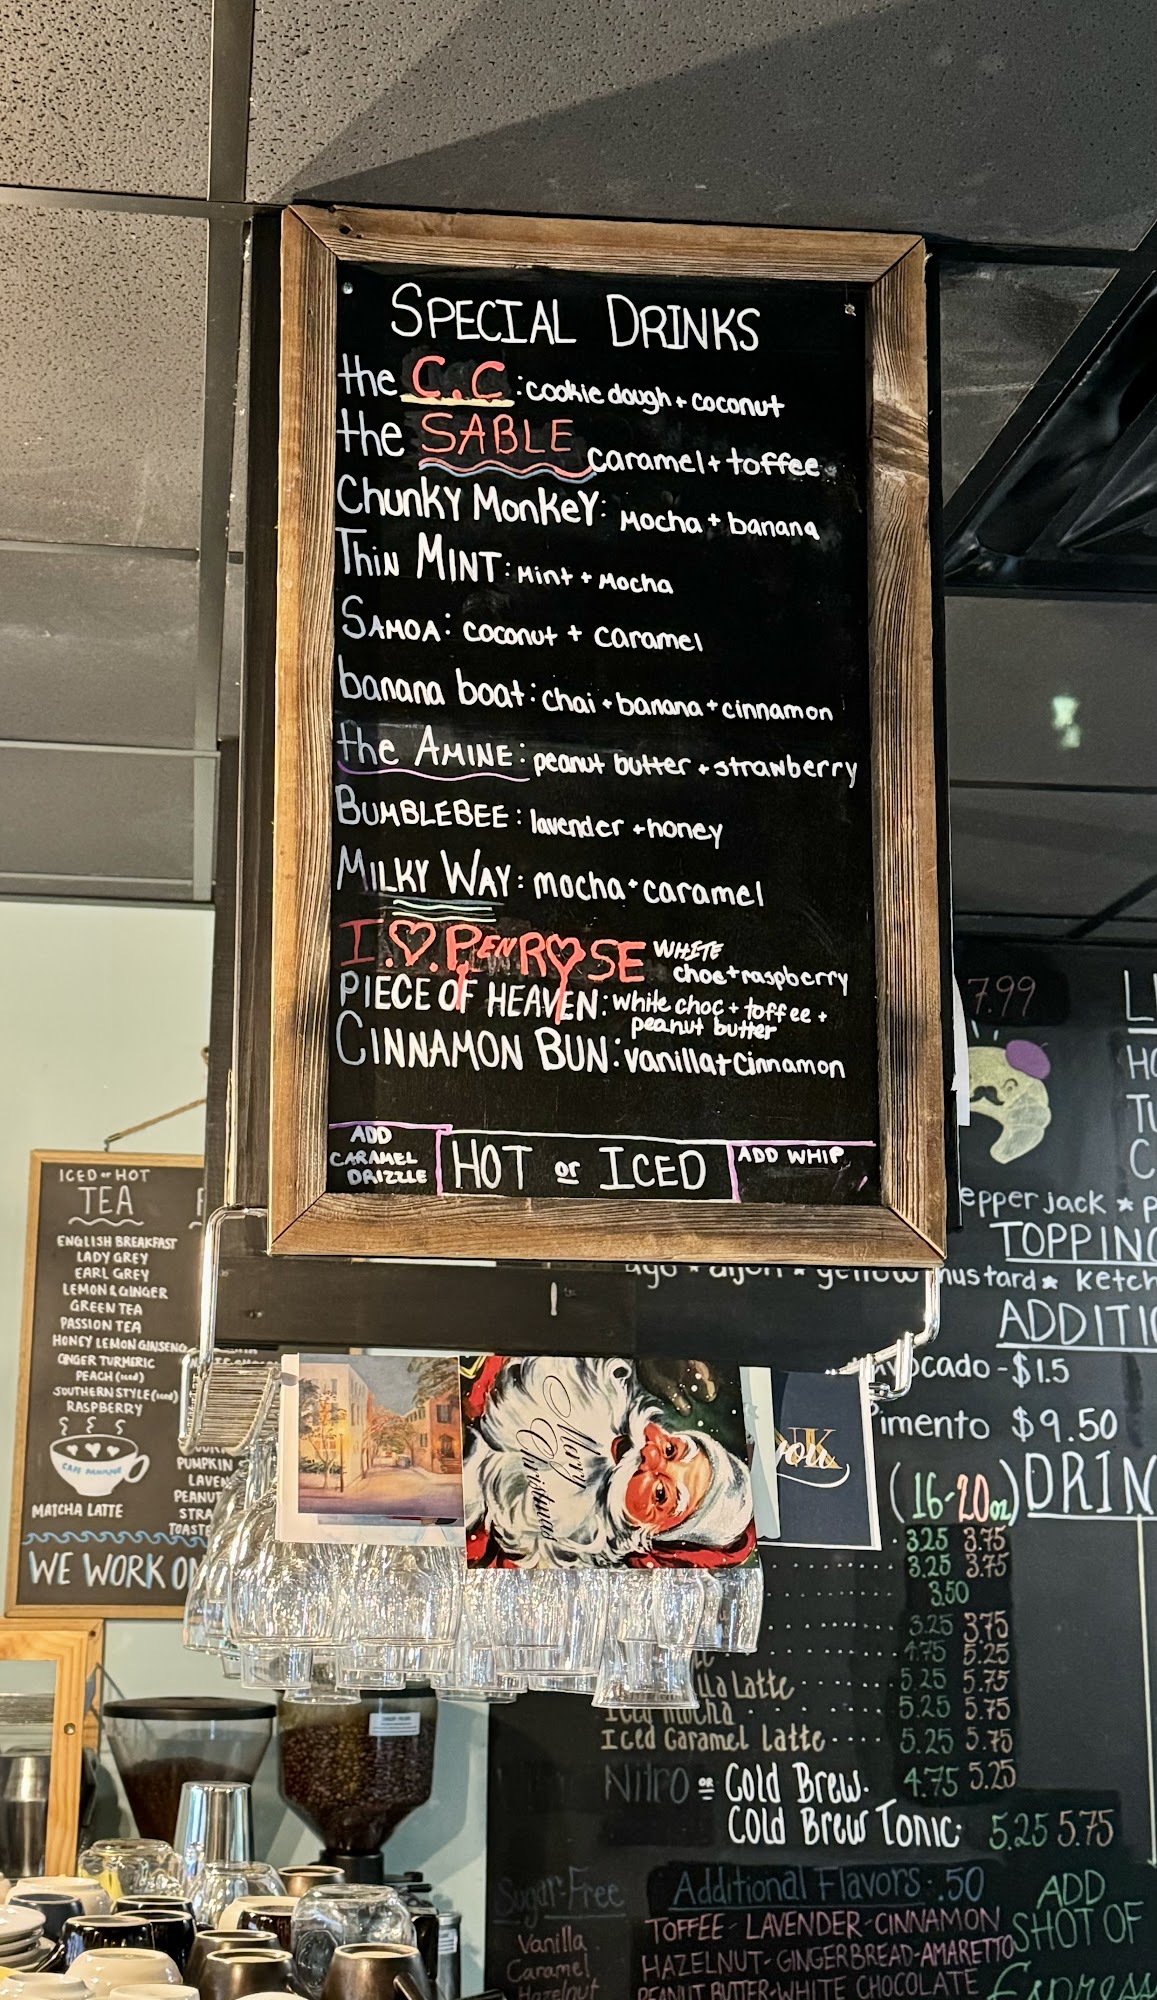 SPECIAL DRINKS
the C.C : cookie dough + coconut
the SABLE caramel + toffee
Chunky Monkey: Mocha + banana
Thin MINT: Mint + Mocha
SAMOA: coconut + caramel
banana boat: chai + banana + cinnamon
the AMINE: peanut butter + strawberry
BUMBLEBEE: lavender + honey
MILKY WAY: mocha + caramel
I.♡.PENROSE WHITE
choc + raspberry
PIECE OF HEAVEN: white choc + toffee +
peanut butter
CINNAMON BUN: vanilla + cinnamon
ADD
CARAMEL
DRIZZLE
HOT or ICED
ADD WHIP
ICED or HOT
TEA
ENGLISH BREAKFAST
LADY GREY
EARL GREY
LEMON & GINGER
GREEN TEA
PASSION TEA
HONEY LEMON GINSENG
GINGER TURMERIC
PEACH (iced)
SOUTHERN STYLE (iced)
RASPBERRY
MATCHA LATTE
WE WORK
PUMPKIN
LAVEN
PEANUT
STRA
TOASTE
Merry
Christmas
you
7.99
epper jack *
TOPPIN
yellow mustard * ketch
ADDITI
avocado - $1.5
Pimento $9.50
(16-20oz) DRIN
3.25 3.75
3.25 3.75
3.50
3.25 3.75
4.75 5.25
lla Latte 5.25 5.75
Iced Mocha 5.25 5.75
Iced Caramel Latte 5.25 5.75
Nitro or Cold Brew 4.75 5.25
Cold Brew Tonic 5.25 5.75
Sugar-Free
Vanilla
Caramel
Hazelnut
Additional Flavors .50
TOFFEE - LAVENDER - CINNAMON
HAZELNUT - GINGERBREAD - AMARETTO
PEANUT BUTTER - WHITE CHOCOLATE
ADD
SHOT OF
Espress